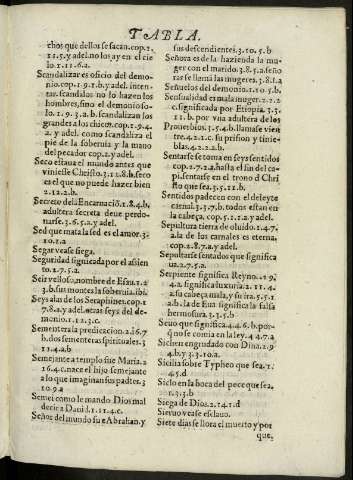 TABLA.
chos que dellos se sacan.cop.1.
11.5.y adel.no los ay en el cie
lo.1.11.6.2.
Scandalizar es oficio del demo-
nio.cop.1.9.1.b.y adel. inten-
tar. scandalos no lo hazen los
hombres, sino el demonio so-
lo.1.9.3.2.b.scandalizan los
grandes a los chicos.cop.1.9.4.
2.y adel. como scandaliza el
pie de la soberuia y la mano
del pecador cop.1.y adel.
Seco estaua el mundo antes que
viniesse Christo.3.11.8.b.seco
es el que no puede hazer bien
2.12.2.b.
Secreto dela Encarnació.1.8.4.b.
adultera secreta deue perdo-
narse.3.6.5.2.y adel.
Sed que mata la sed es el amor.3.
10.1.2
Segar vease siega.
Seguridad significada por el asien
to.2.7.5.2.
Seir velloso, nombre de Esau.1.2
3.b.sus montes la soberuia.ibi.
Seys alas de los Seraphines.cop.1
7.8.2.y adel.otras seys del de-
monio.1.12.3.c.
Sementera la predicacion.2.16.7
b.dos sementeras spirituales.3
11.4.2.b
Semejante a templo fue Maria.2
16.4.c.nace el hijo semejante
a lo que imaginan sus padres.3
10.9.2
Semei como le mando Dios mal
dezir a Dauid.1.11.4.c.
Señor del mundo fue Abrahan.y
sus descendientes.3.10.5.b
Señora es de la hazienda la mu-
ger con el marido.3.8.5.2.seño
ras se llamã las mugeres.3.8.1.2
Señuelos del demonio.1.10.5.b.
Sensualidad es mala muger.2.12.2
c.significada por Etiopia.3.3.
11.b. por vna adultera de los
Prouerbios.3.5.4.b.llamase vien
tre.4.2.2.1.c. su prision y tinie-
blas.4.2.2.2.b.
Sentarse se toma en seys sentidos
cop.2.7.2.2.hasta el fin del ca-
pi.sentarse en el trono d Chri
sto que sea.3.5.11.b.
Sentidos padecen con el deleyte
carnal.3.3.7.b. todos estan en
la cabeça. cop.5.1.2.2.y adel.
Sepultura tierra de oluido.1.4.7.
2.la de los carnales es eterna.
cop.2.8.7.2.y adel.
Sepultarse sentados que significa
ua.2.7.5.2.
Serpiente significa Reyno.
4.2.significa luxuria.2.11.4.
2.su cabeça mala, y su ira.5.5.1
2.b. la de Eua significa la falsa
hermosura.3.3.5.b
Seuo que significa.4.4.6.b.por-
q̃ no se comia en la ley.4.4.7.2
Sichen engrudado con Dina.2.9
4.b.y 3.3.10.2.
Sicilia sobre Typheo que sea.1.
4.5.d
Siclo en la boca del pece que sea.
1.3.3.b
Siega de Dios.2.14.1.d
Sieruo vease esclauo.
Siete dias se llora el muerto y por
que,